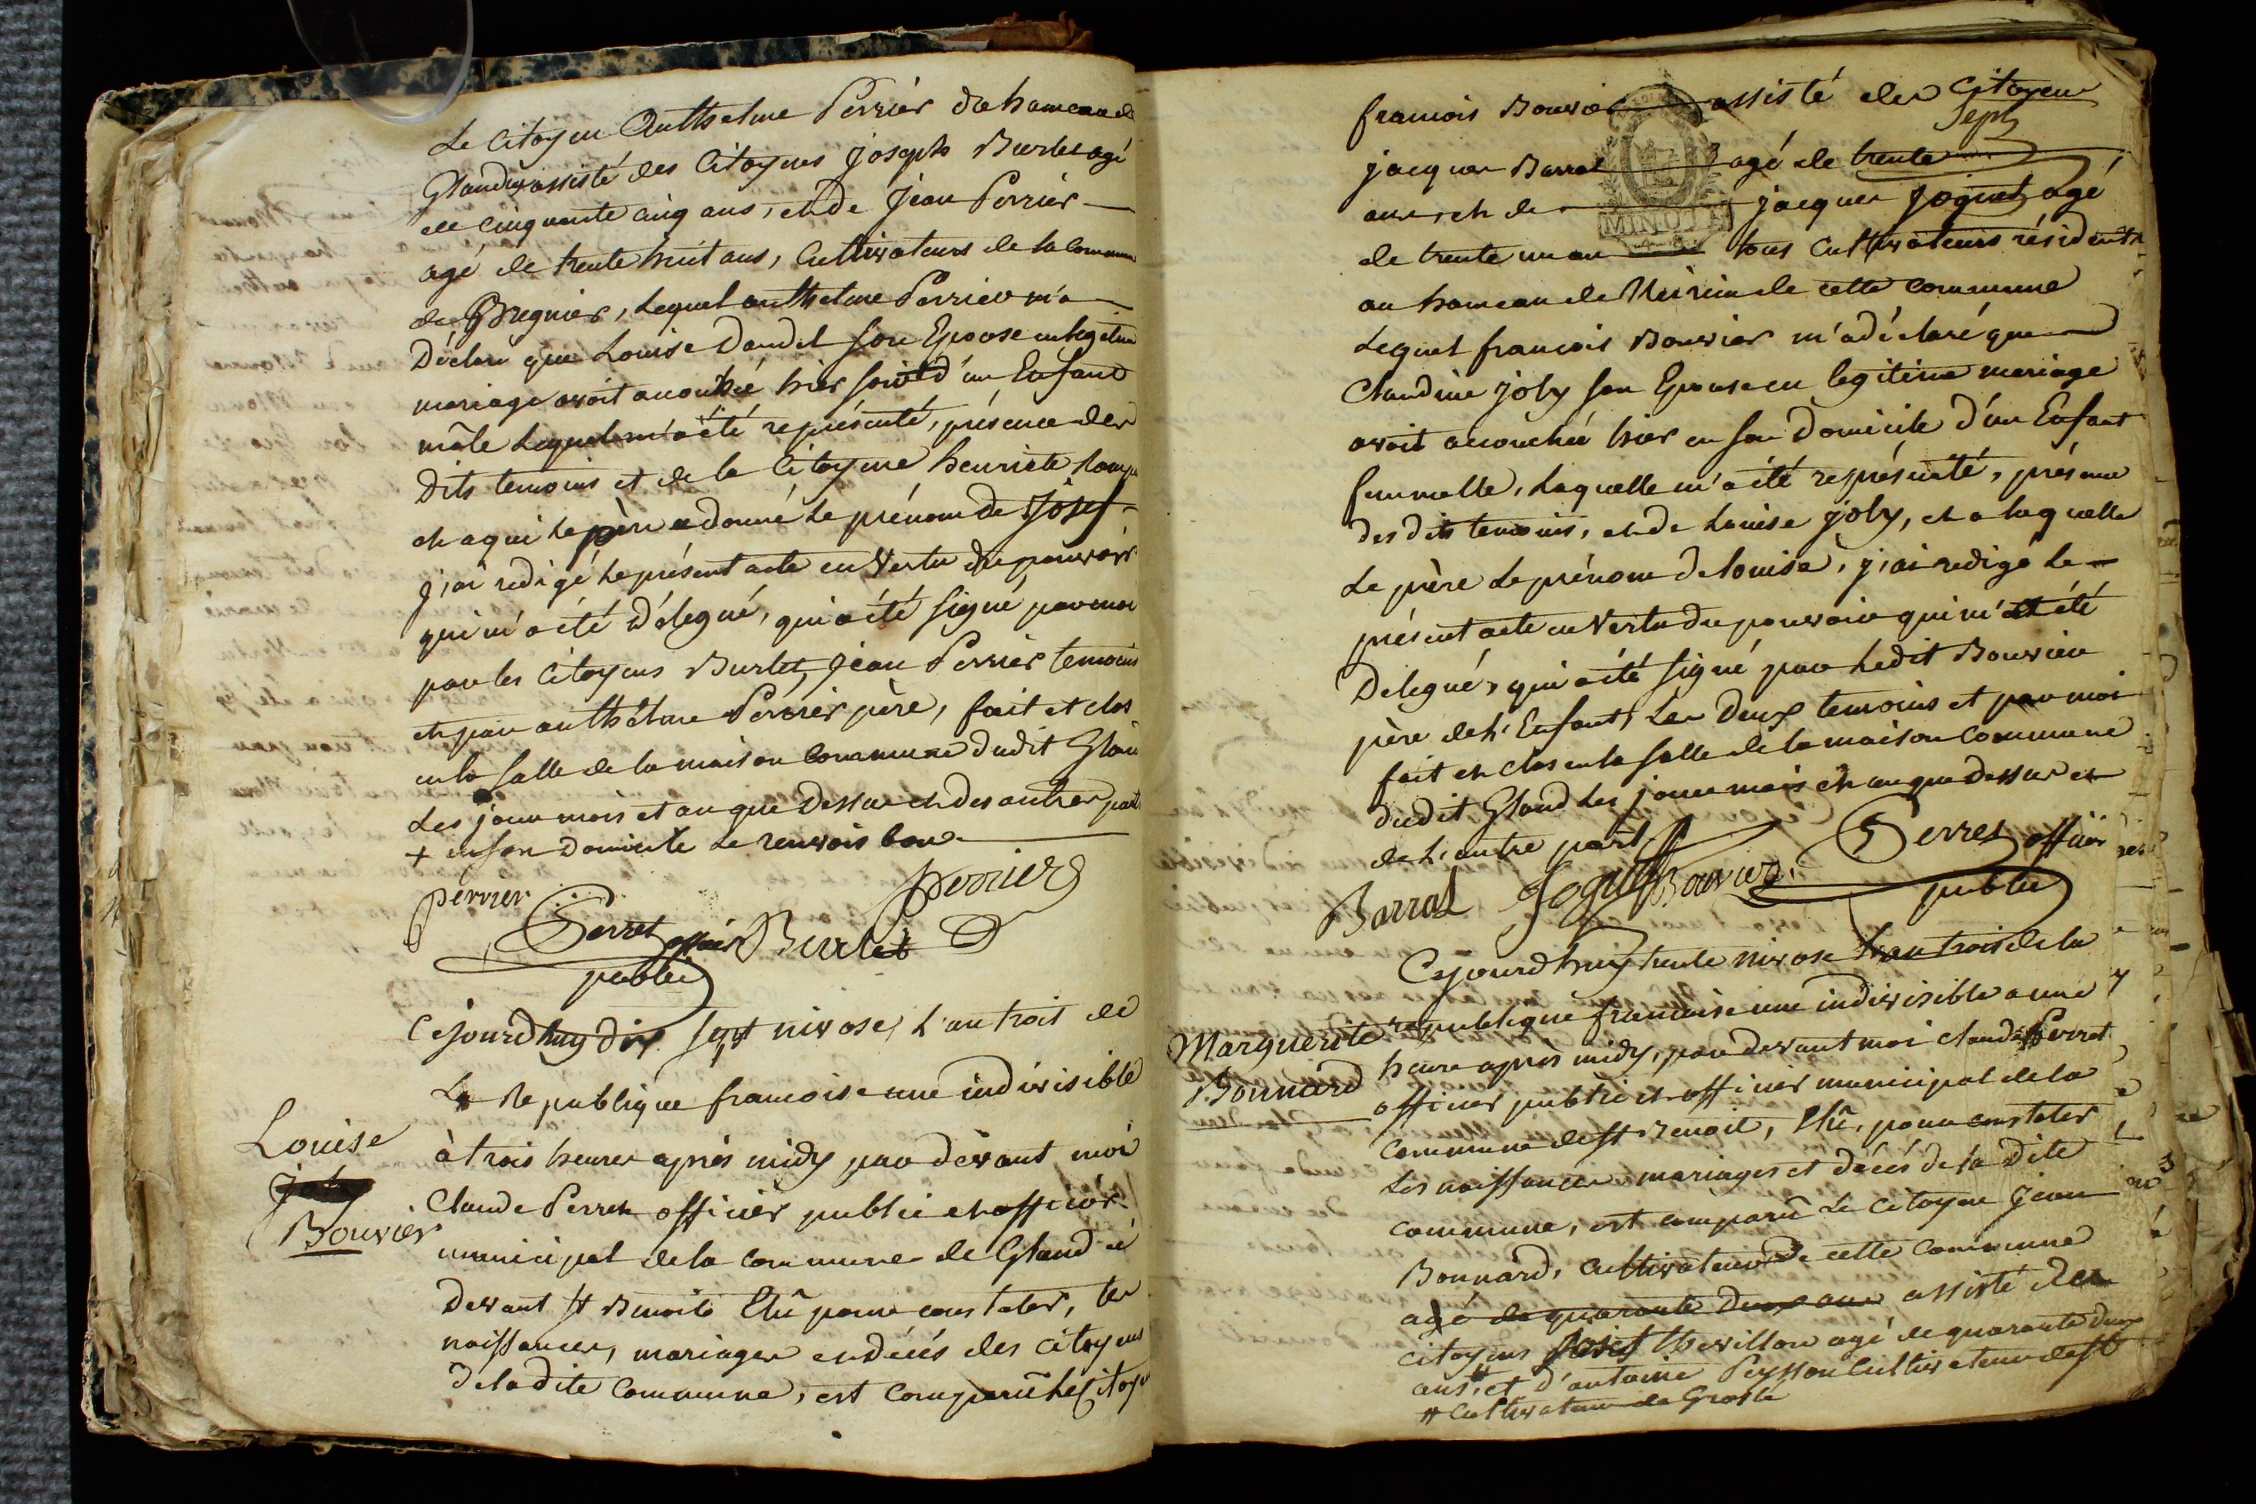 Le Citoyen Anthelme Perrier du hameau de
Glandieu assisté des Citoyens joseph Burlet agé
de cinquante cinq ans, et de Jean Perrier
agé de trente huit ans, Cultivateurs de la Commune
de Bregnier, lequel anthelme Perrier m'a
Déclaré que Louise Daudel son Epouse en legitime
mariage avoit accouchée hier soir d'un Enfant
mâle lequel m'a été représenté, présence des
Dits temoins et de la Citoyene henriete
et a qui le père a donné le prénom de josef
j'ai redigé le présent acte en Vertu du pouvoir
qui m'a été délegué, qui a été signé par moi
par les Citoyens Burlet, jean Perrier temoins
et par anthelme Perrier père, fait et clos
en la salle de la maison Commune dudit Gland
Les jour mois et an que Dessus et des autres parts
+ en son Domicile Le renvois bon
perrier perrier
Perret officier Burlet
public
Cejourdhuy dix sept nivose, L'an trois de
La République francoise une indivisible
Louise
à trois heures après midy par devant moi
Claude Perret officier public et officier
Bouvier
municipal de la commune de Gland ci
Devant St Benoit Elû pour constater, les
naissances, mariages et décés des citoyens
De la dite Commune, est comparû le Citoyen
francois Bouvier assisté des Citoyens
sept
jacques Barral agé de trente
ans, et de jacques joguet agé
MINUTE
de trente un an tous cultivateurs résidents
au hameau de de cette commune
Lequel francois Bouvier m'a déclaré que
Claudine joly son Epouse en legitime mariage
avoit accouchée hier en son Domicile d'un Enfant
fummelle, laquelle m'a été représenté, présence
des dits temoins, et de Louise joly, et a laquelle
Le père Le prénom de Louise, j'ai redigé le
présent acte en Vertu du pouvoir qui m'a été
Delegué, qui a été signé par ledit Bouvier
père de l'Enfant, Les Deux temoins et par moi
fait et clos en la salle de la maison Commune
dudit Gland les jour mois et an que dessus et
de l'autre part
Barral joguet Bouvier Perret officier
public
Cejourdhuy trente nivose L'an trois de la
republique francaise une indivisible a une
Marguerite
heure après midy, par devant moi claude Perret
Bonnard
officier public et officier municipal de la
Commune de St Benoit, Elû, pour constater
Les naissances mariages et décés de la Dite
commune, est comparû Le citoyen jean
Bonnard, cultivateur de cette Commune
agé de quarante Deux ans assisté des
citoyens josef Thevillon agé de quarante deux
ans # et d'antoine Peysson Cultivateur de St
# Cultivateur de Groslé